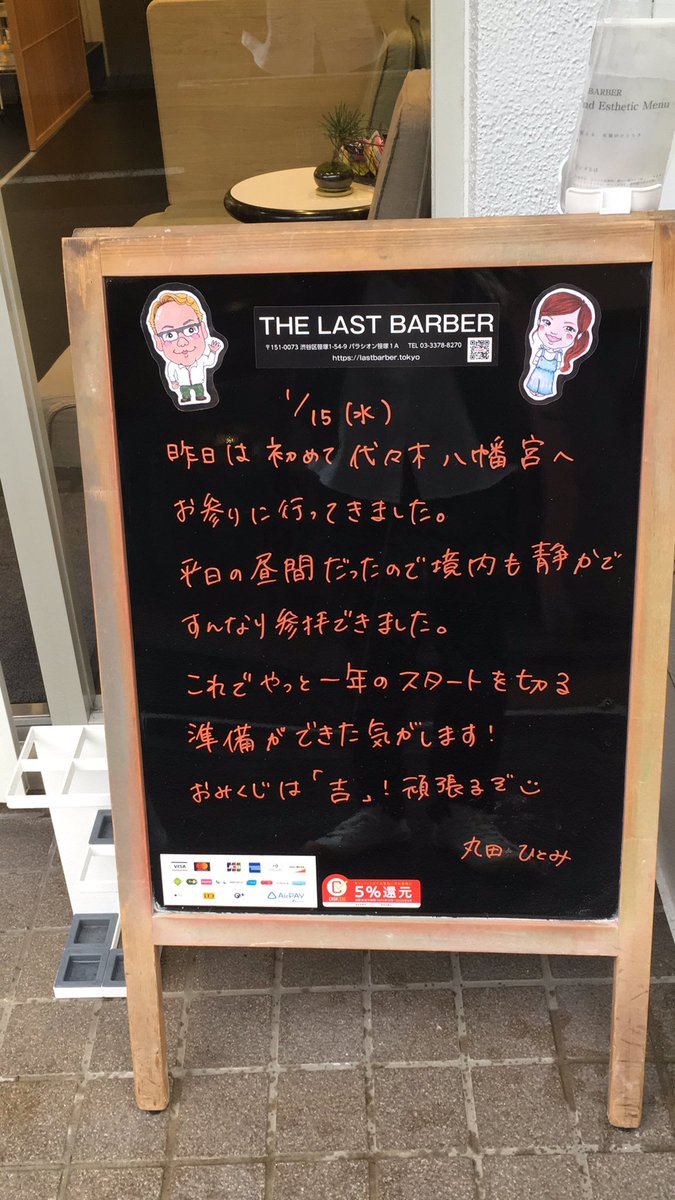 BARBER
nd Esthetic Menu
THE LAST BARBER
〒151-0073 渋谷区笹塚1-54-9 パラシオン笹塚1A TEL 03-3378-8270
https://lastbarber.tokyo
1/15(水)
昨日は初めて代々木八幡宮へ
お参りに行ってきました。
平日の昼間だったので境内も静かで
すんなり参拝できました。
これでやっと一年のスタートを切る
準備ができた気がします!
おみくじは「吉」!頑張るぞ
丸田 ひとみ
VISA
JCB
AirPAY
5%還元